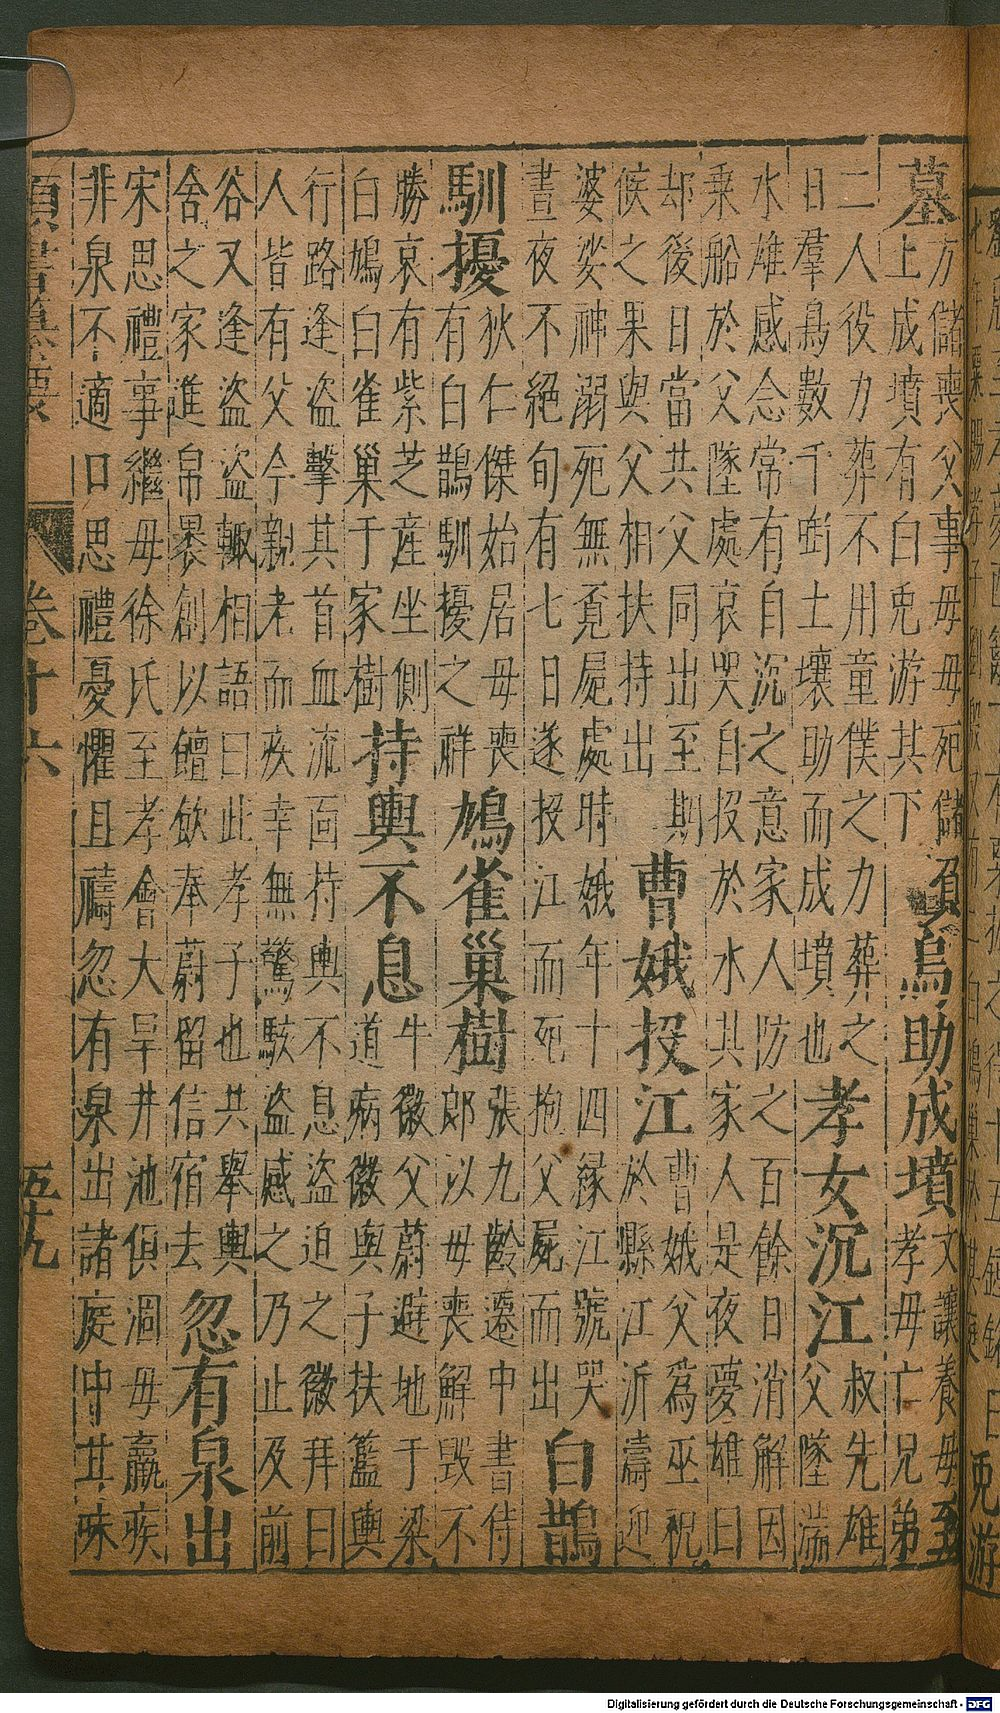 墓方儲喪父事母母死儲
上成墳有白兎游其下負烏助成墳文讓養母至
孝母亡兄弟
二人役力葬不用童僕之力葬之
日羣鳥數千啣土壤助而成墳也孝女沉江叔先雄
父墜湍
水雄感念常有自沉之意家人防之百餘日消解因
乗船於父墜處哀哭自投於水其家人是夜夢雄曰
却後日當共父同出至期
候之果與父相扶持出曹娥投江曹娥父爲巫祝
於縣江泝濤迎
婆娑神溺死無覔屍處時娥年十四縁江號哭
晝夜不絕旬有七日遂投江而死抱父屍而出白鵲
馴擾狄仁傑始居母喪
有白鵲馴擾之祥鳩雀巢樹張九齡遷中書侍
郎以母喪解毀不
勝哀有紫芝產坐側
白鳩白雀巢于家樹持輿不息牛徽父蔚避地于梁
道病徽與子扶籃輿
行路逢盜擊其首血流面持輿不息盜迫之徽拜曰
人皆有父今親老而疾幸無驚駭盜感之乃止及前
谷又逢盜盜輒相語曰此孝子也共舉輿
舍之家進帛褁創以饘飲奉蔚留信宿去忽有泉出
宋思禮事繼母徐氏至孝會大旱井池傎涸母羸疾
非泉不適口思禮憂懼且禱忽有泉出諸庭中其味
卷十六
五十九
Digitalisierung gefördert durch die Deutsche Forschungsgemeinschaft - DFG